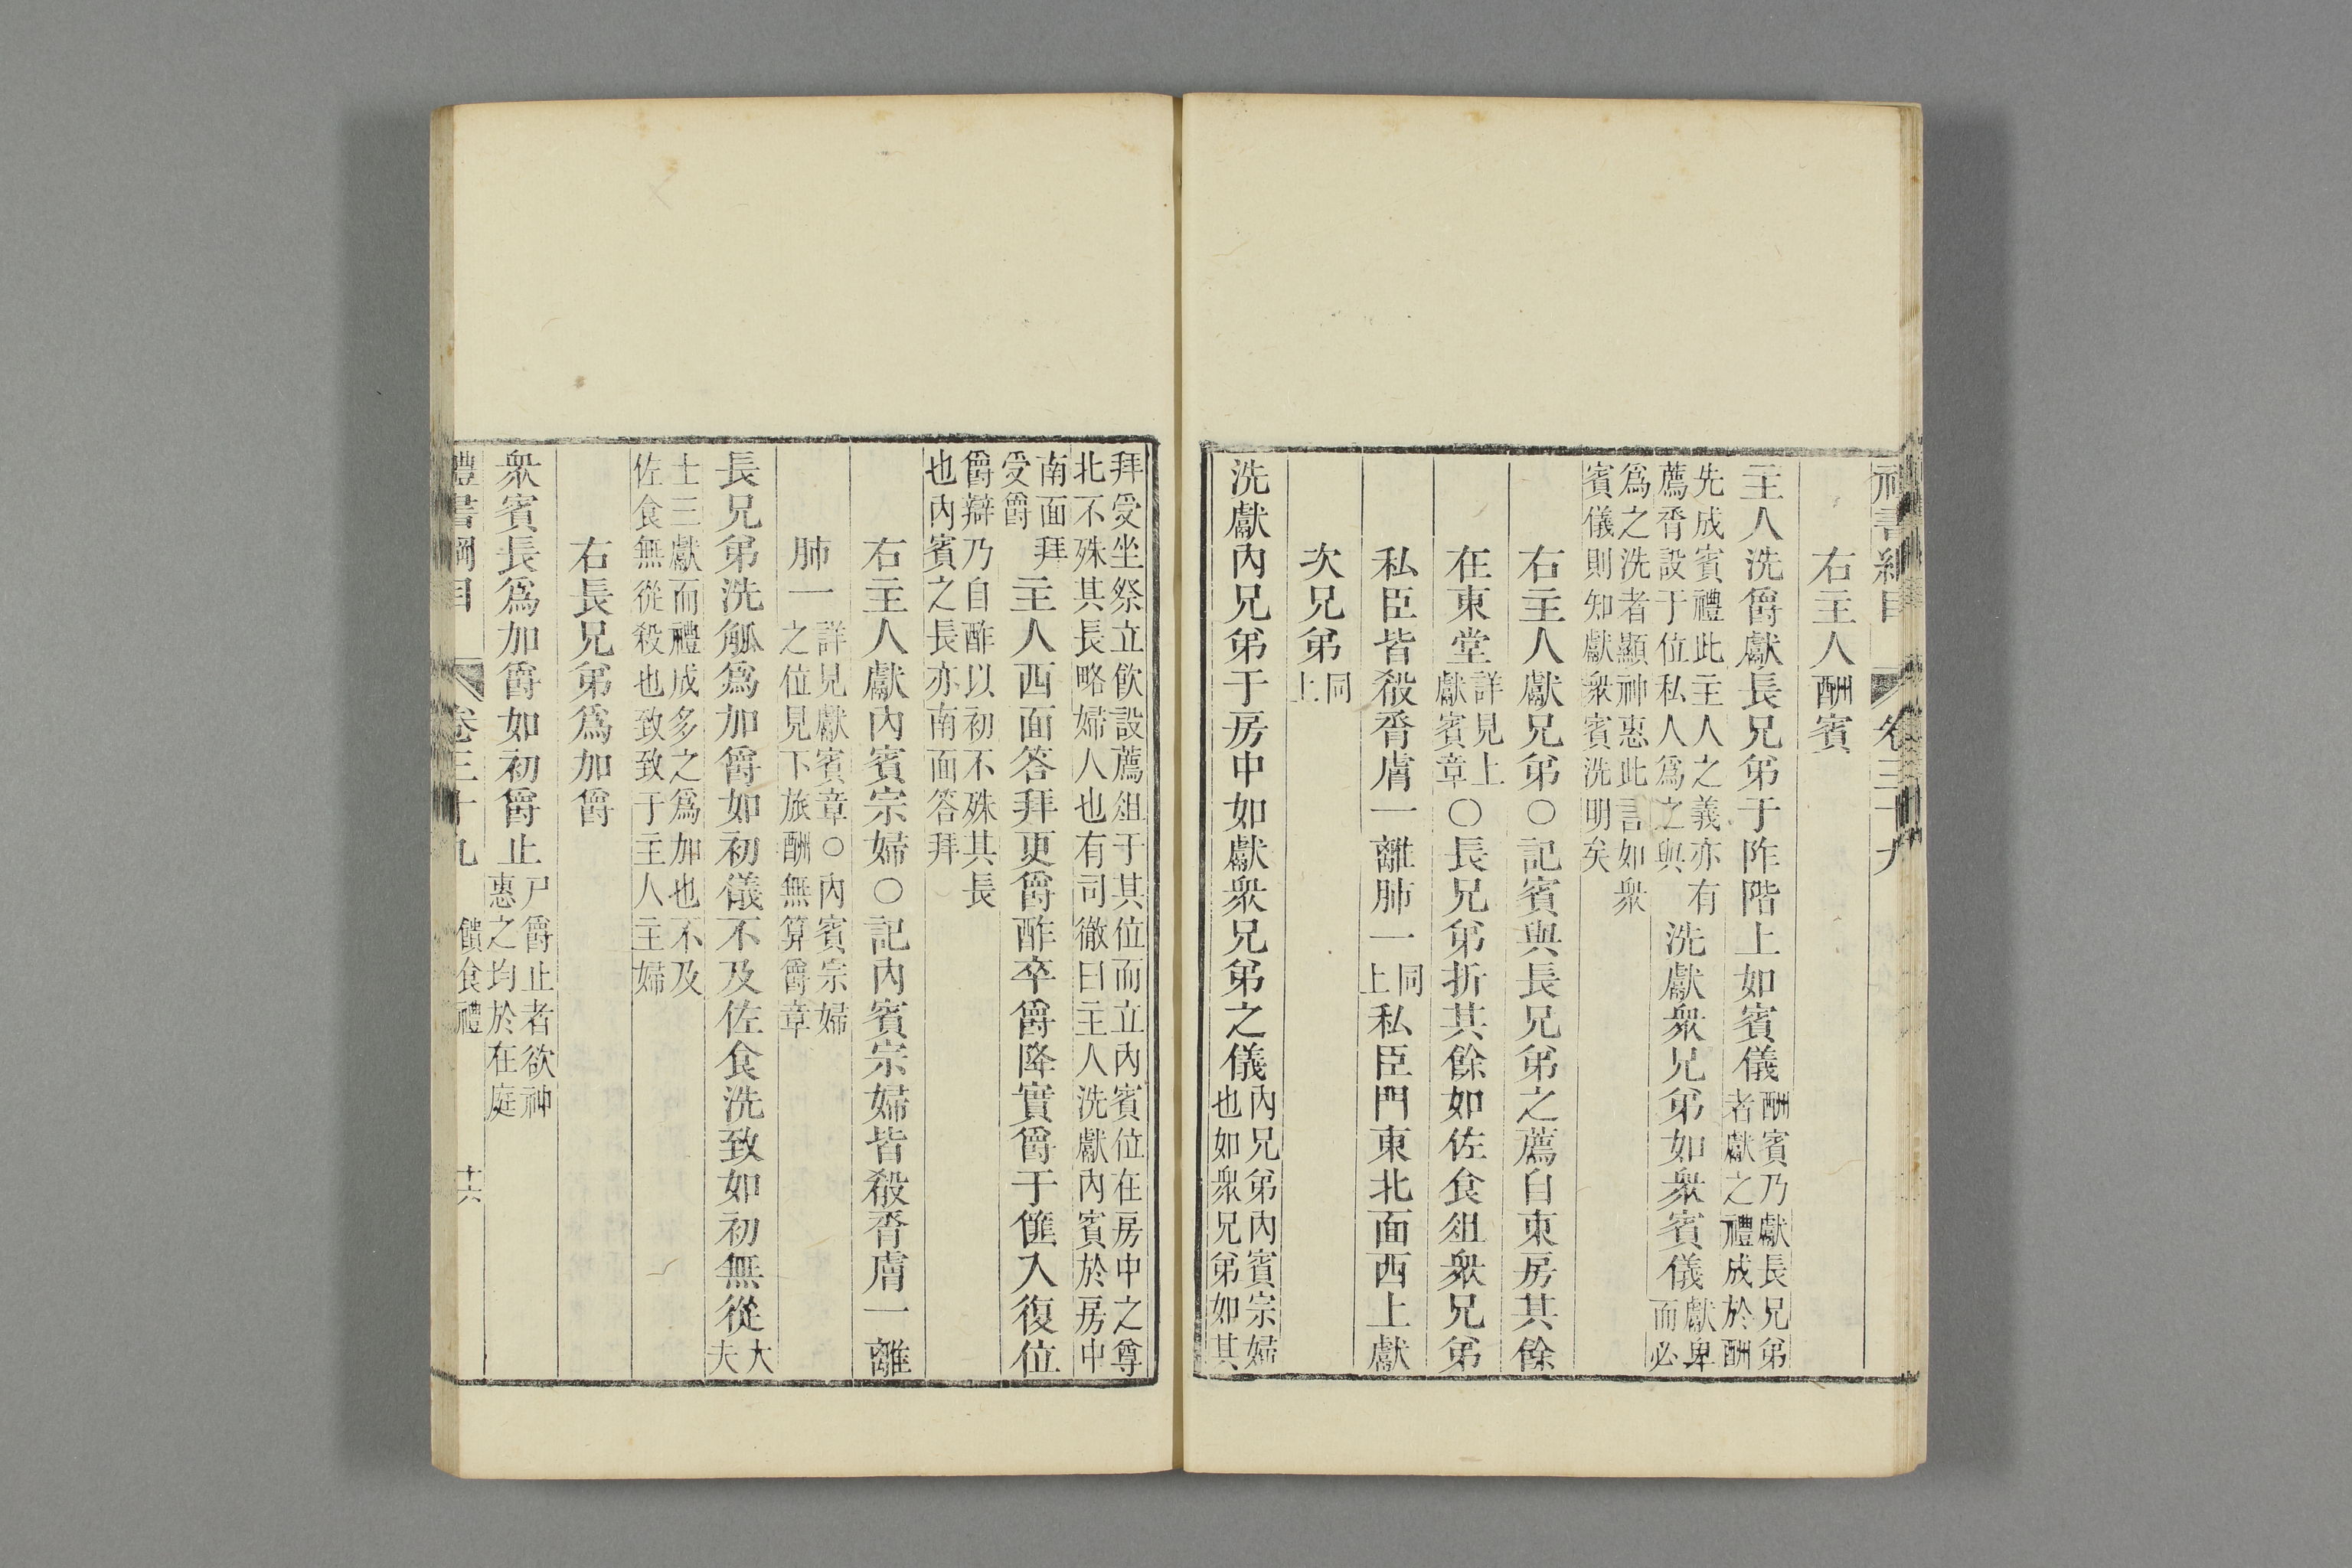 右主人酬賓
主人洗爵獻長兄弟于阼階上如賓儀酬賓乃獻長兄弟者獻之禮成於酬
先成賓禮此主人之義亦有薦脀設于位私人爲之與洗獻衆兄弟如衆賓儀獻卑而必
爲之洗者顯神惠此言如衆賓儀則知獻衆賓洗明矣
右主人獻兄弟○記賓與長兄弟之薦自東房其餘
在東堂詳見上獻賓章○長兄弟折其餘如佐食俎衆兄弟
私臣皆殽脀膚一離肺一同上私臣門東北面西上獻
次兄弟同上
洗獻內兄弟于房中如獻衆兄弟之儀內兄弟內賓宗婦也如衆兄弟如其
拜受坐祭立飲設薦俎于其位而立內賓位在房中之尊北不殊其長略婦人也有司徹曰主人洗獻內賓於房中
南面拜受爵主人西面答拜更爵酢卒爵降實爵于篚入復位
爵辯乃自酢以初不殊其長也內賓之長亦南面答拜
右主人獻內賓宗婦○記內賓宗婦皆殽脀膚一離
肺一詳見獻賓章○內賓宗婦之位見下旅酬無算爵章
長兄弟洗觚爲加爵如初儀不及佐食洗致如初無從大夫
士三獻而禮成多之爲加也不及佐食無從殺也致致于主人主婦
右長兄弟爲加爵
衆賓長爲加爵如初爵止尸爵止者欲神惠之均於在庭
禮書綱目 卷三十九 饋食禮 十六